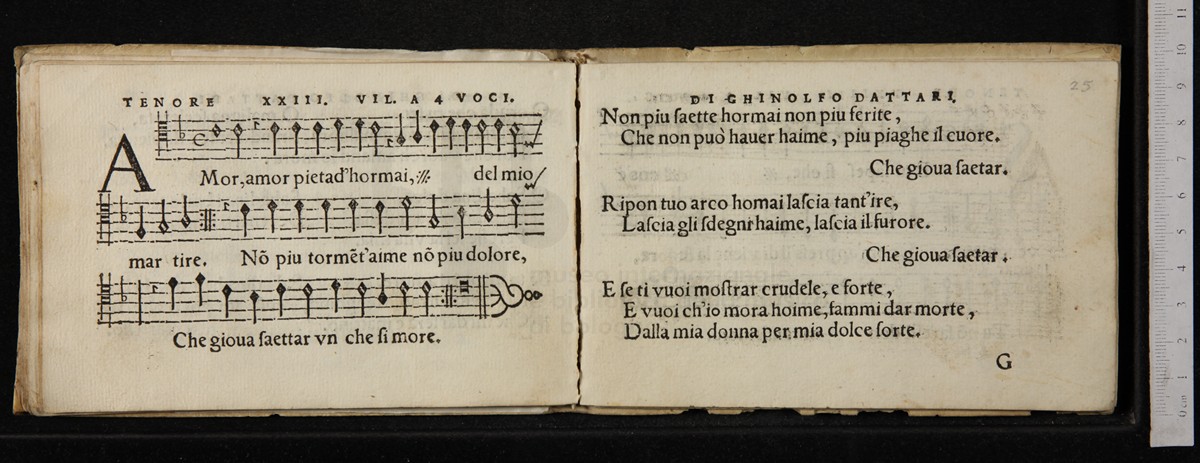 TENORE XXIII. VIL. A 4 VOCI.
AMor, amor pietad'hormai, :||: del mio
mar tire. Nõ piu tormẽt'aime nõ piu dolore,
Che gioua ſaettar vn che ſi more.
DI GHINOLFO DATTARI.
25
Non piu ſaette hormai non piu ferite,
Che non può hauer haime, piu piaghe il cuore.
Che gioua ſaetar.
Ripon tuo arco homai laſcia tant'ire,
Laſcia gli ſdegni haime, laſcia il furore.
Che gioua ſaetar.
E ſe ti vuoi moſtrar crudele, e forte,
E vuoi ch'io mora hoime, fammi dar morte,
Dalla mia donna per mia dolce ſorte.
G
0 cm 1 2 3 4 5 6 7 8 9 10 11